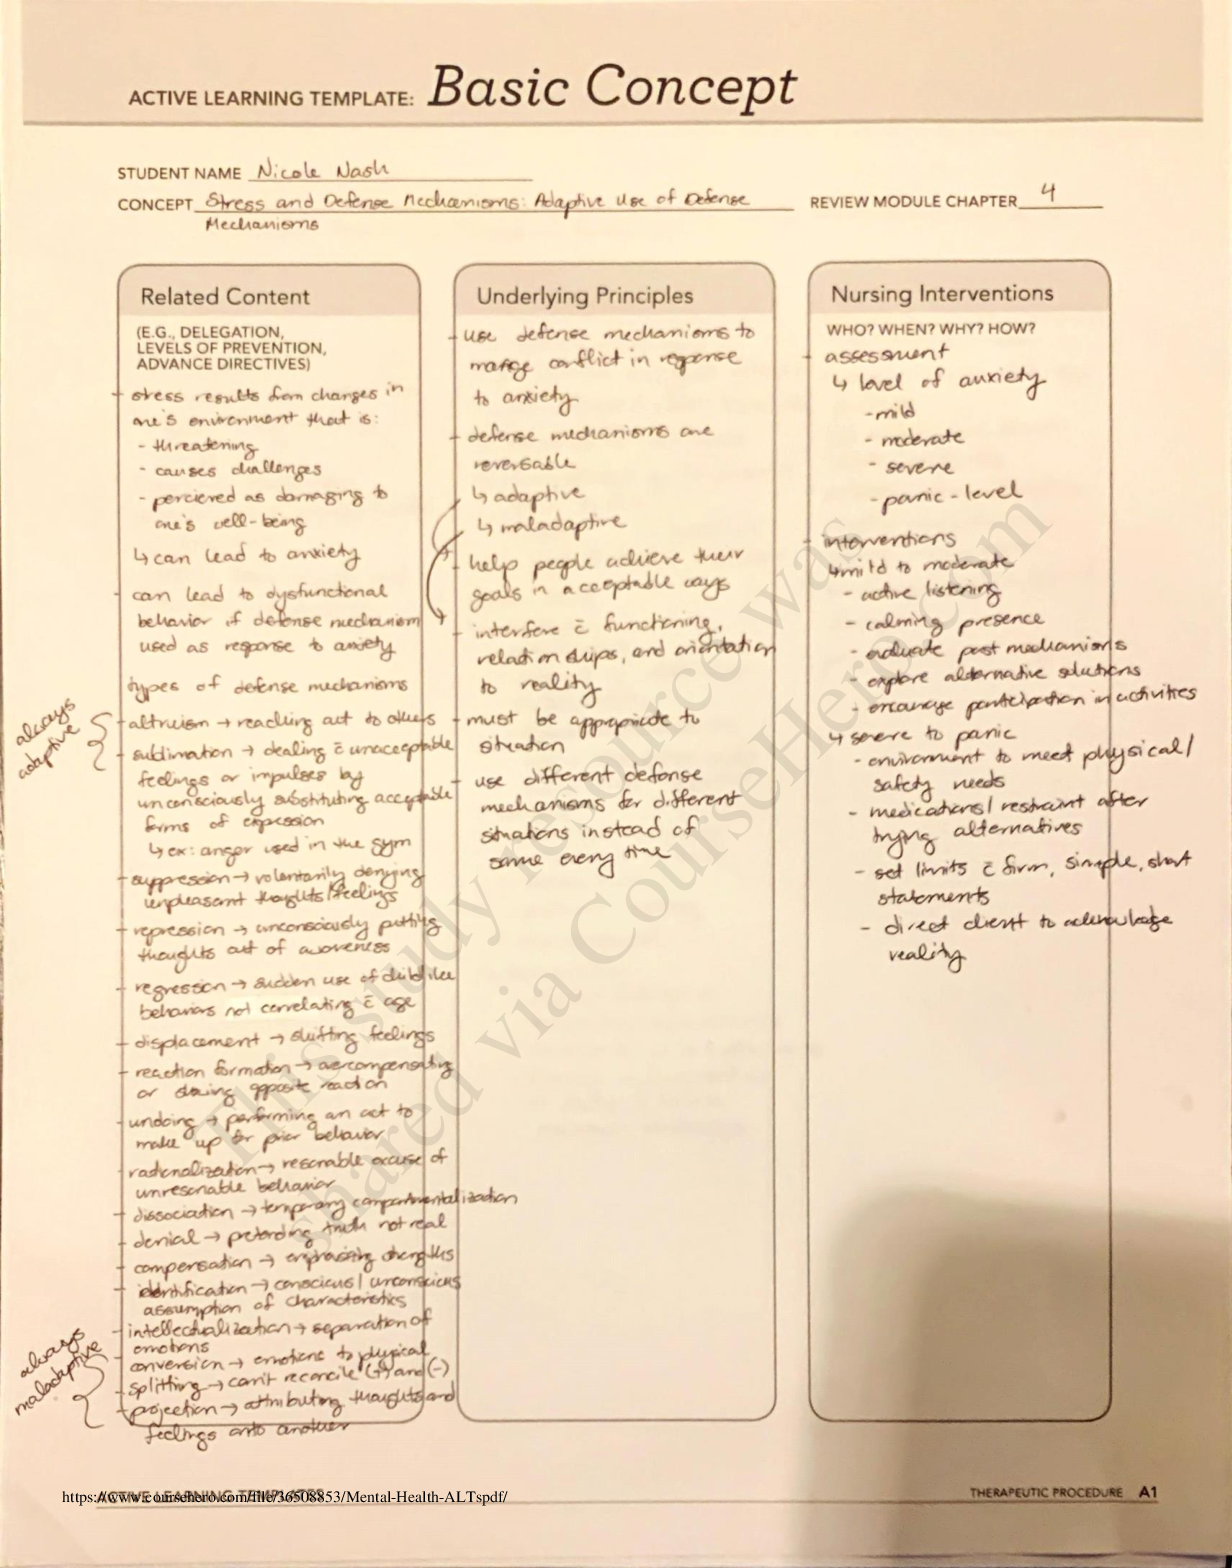 ACTIVE LEARNING TEMPLATE: Basic Concept
STUDENT NAME Nicole Nash
CONCEPT Stress and Defense Mechanisms: Adaptive Use of Defense
Mechanisms
REVIEW MODULE CHAPTER 4
Related Content
(E.G., DELEGATION,
LEVELS OF PREVENTION,
ADVANCE DIRECTIVES)
- stress results from changes in
one's environment that is:
- threatening
- causes challenges
- percieved as damaging to
one's well-being
↳ can lead to anxiety
- can lead to dysfunctional
behavior if defense mechanism
used as response to anxiety
- types of defense mechanisms
always
adaptive
- altruism → reaching out to others
- sublimation → dealing c̄ unacceptable
feelings or impulses by
unconsciously substituting acceptable
forms of expression
↳ ex: anger used in the gym
- suppression → voluntarily denying
unpleasant thoughts/feelings
- repression → unconsciously putting
thoughts out of awareness
- regression → sudden use of childlike
behaviors not correlating c̄ age
- displacement → shifting feelings
- reaction formation → overcompensating
or showing opposite reaction
- undoing → performing an act to
make up for prior behavior
- rationalization → resonable excuse of
unresonable behavior
- dissociation → temporary compartmentalization
- denial → pretending truth not real
- compensation → emphasizing strengths
- identification → conscious/unconscious
assumption of characteristics
- intellectualization → separation of
emotions
always
maladaptive
- conversion → emotions to physical
- splitting → can't reconcile (+) and (-)
- projection → attributing thoughts and
feelings onto another
Underlying Principles
- use defense mechanisms to
manage conflict in response
to anxiety
- defense mechanisms are
reversable
↳ adaptive
↳ maladaptive
- help people achieve their
goals in acceptable ways
- interfere c̄ functioning,
relationships, and orientation
to reality
- must be appropriate to
situation
- use different defense
mechanisms for different
situations instead of
same every time
Nursing Interventions
WHO? WHEN? WHY? HOW?
- assessment
↳ level of anxiety
- mild
- moderate
- severe
- panic-level
- interventions
↳ mild to moderate
- active listening
- calming presence
- evaluate past mechanisms
- explore alternative solutions
- encourage participation in activities
↳ severe to panic
- environment to meet physical/
safety needs
- medications/restraint after
trying alternatives
- set limits c̄ firm, simple, short
statements
- direct client to acknowledge
reality
This study resource was
shared via CourseHero.com
ACTIVE LEARNING TEMPLATES
https://www.coursehero.com/file/36508853/Mental-Health-ALTspdf/
THERAPEUTIC PROCEDURE A1